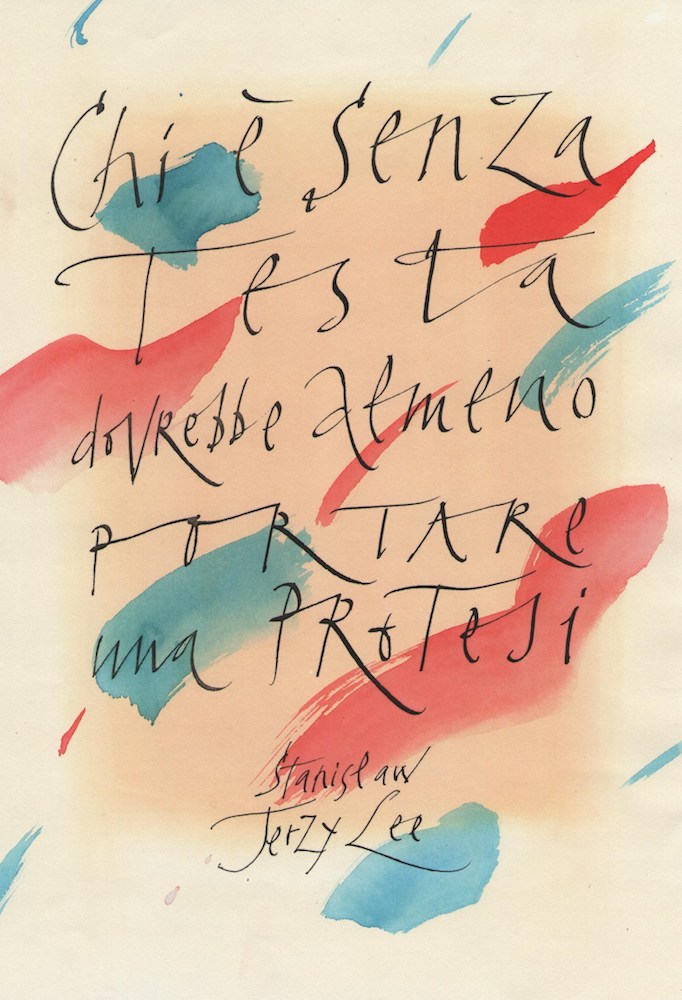 Chi è senza
Testa
dovrebbe almeno
PORTARE
una PROTesi
Stanislaw
Jerzy Lec